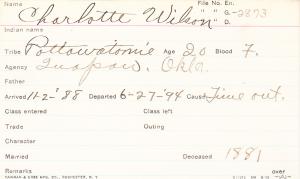 Name Charlotte Wilson File No. En.
" " G- 2873
Indian name " " D.
Tribe Pottowatomie Age 20 Blood F.
Agency Quapaw. Okla.
Father
Arrived 11-2-'88 Departed 6-27-'94 Cause Time out.
Class entered Class left
Trade Outing
Character
Married Deceased 1881
Remarks over